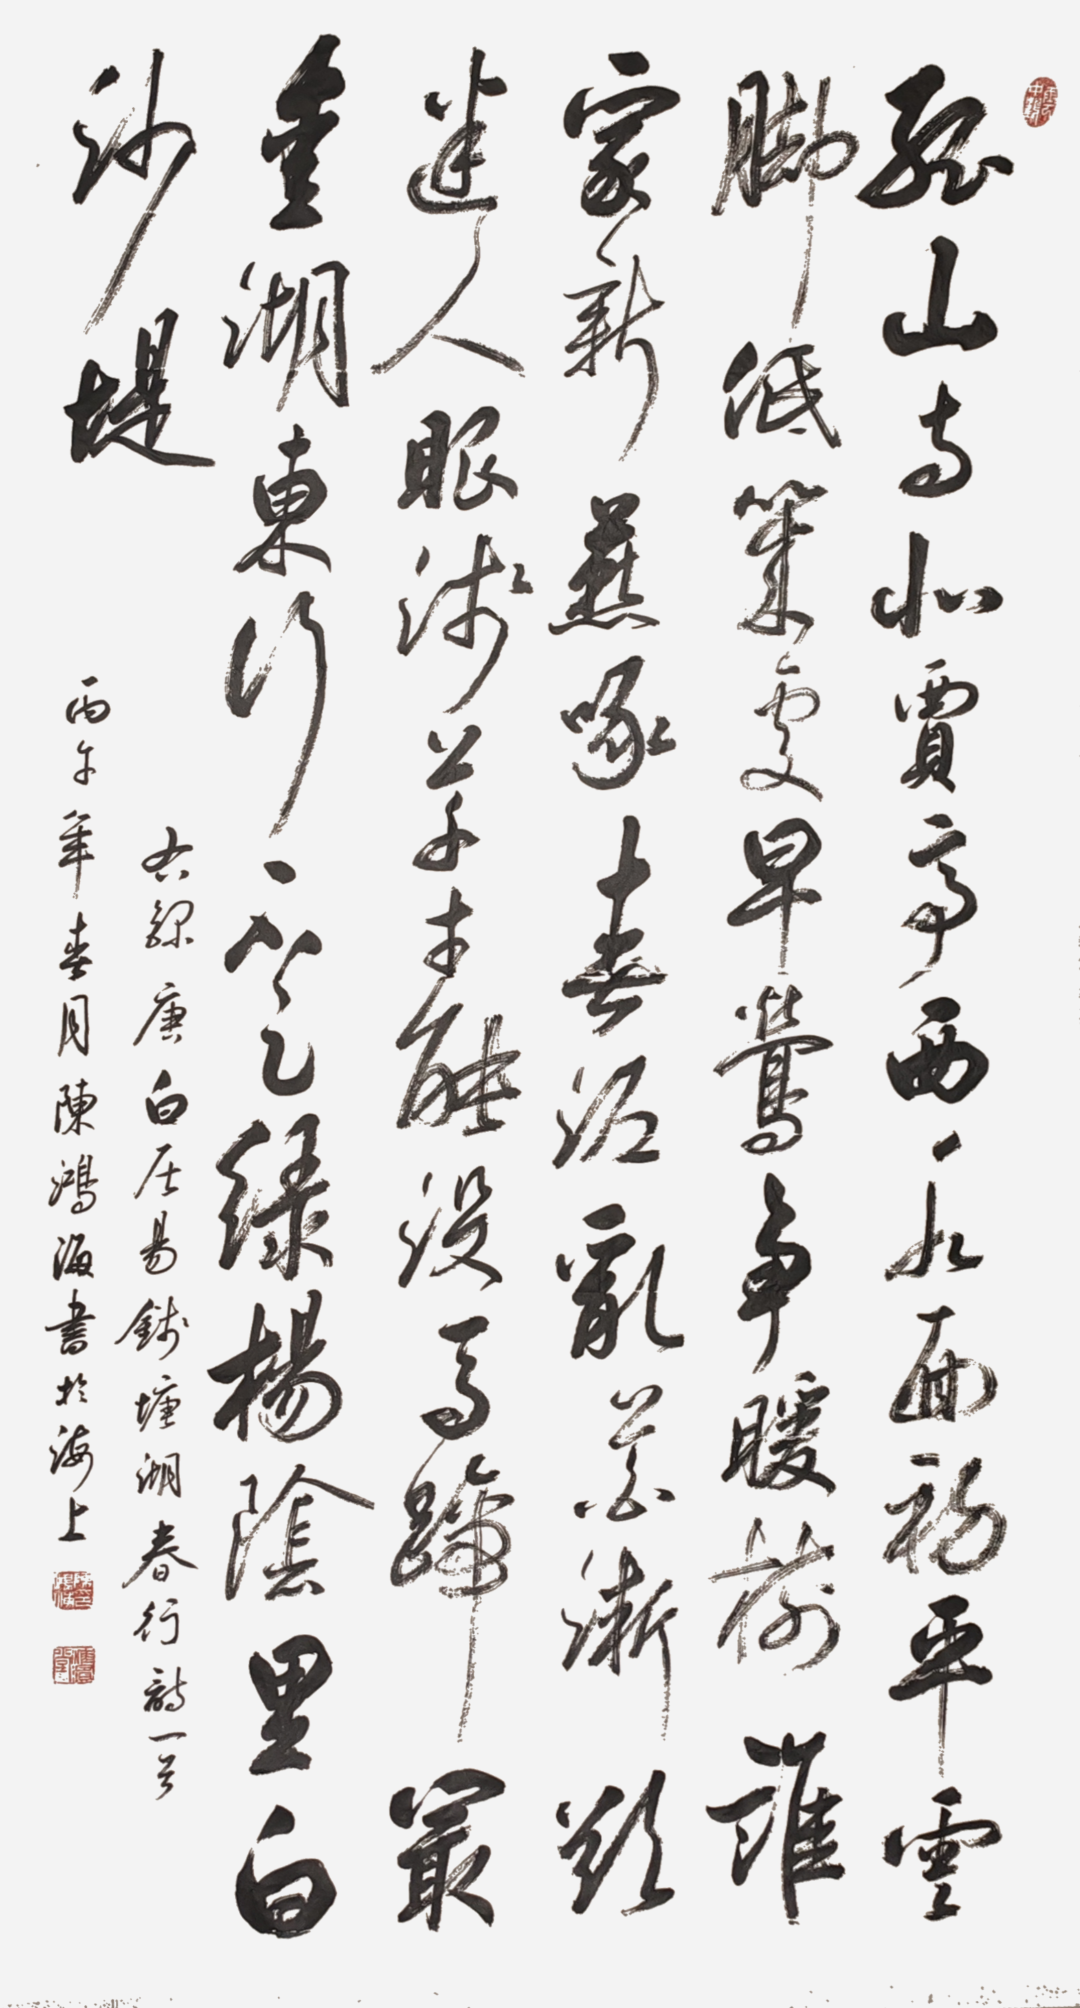 孤山寺北賈亭西水面初平雲
脚低幾處早鶯争暖樹誰
家新燕啄春泥亂花漸欲
迷人眼淺草才能没馬蹄最
愛湖東行不足緑楊陰里白
沙堤
右錄唐白居易錢塘湖春行詩一首
丙午年春月陳鴻海書於海上